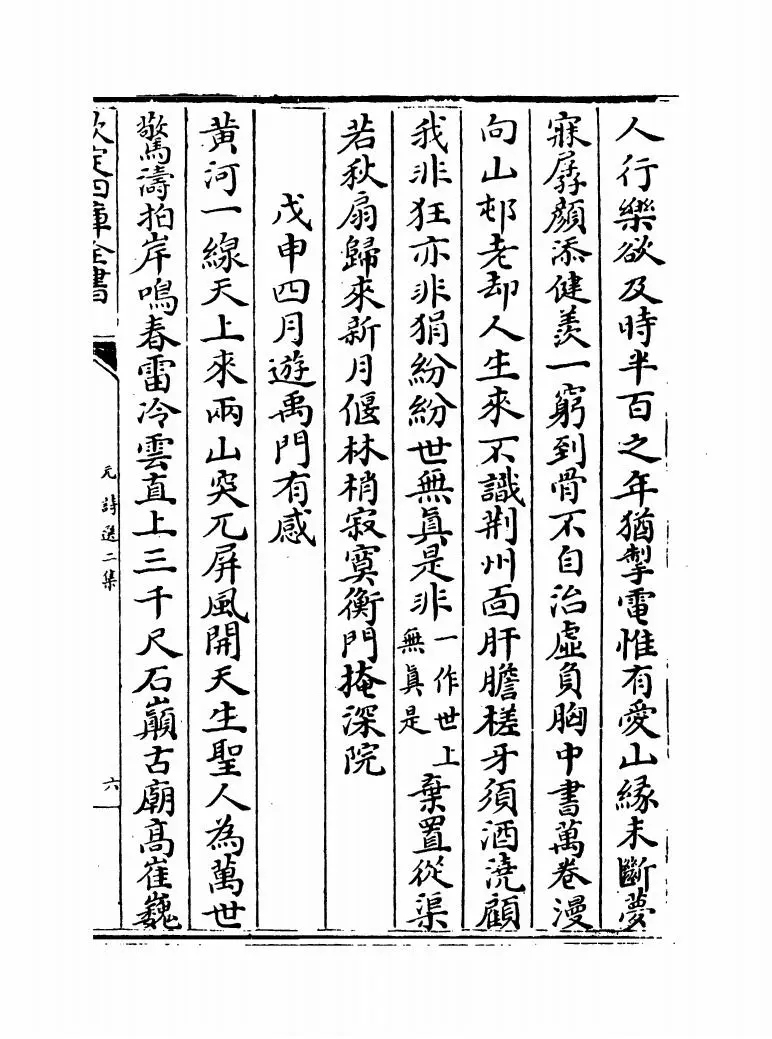 人行樂欲及時半百之年猶掣電惟有愛山緣未斷夢
寐孱顏添健羨一窮到骨不自治虛負胸中書萬卷漫
向山邨老却人生來不識荆州面肝膽槎牙須酒澆顧
我非狂亦非狷紛紛世無眞是非一作世上無眞是棄置從渠
若秋扇歸來新月偃林梢寂寞衡門掩深院
戊申四月遊禹門有感
黄河一線天上來兩山突兀屏風開天生聖人為萬世
驚濤拍岸鳴春雷冷雲直上三千尺石巓古廟髙崔巍
欽定四庫全書
元詩選二集
六